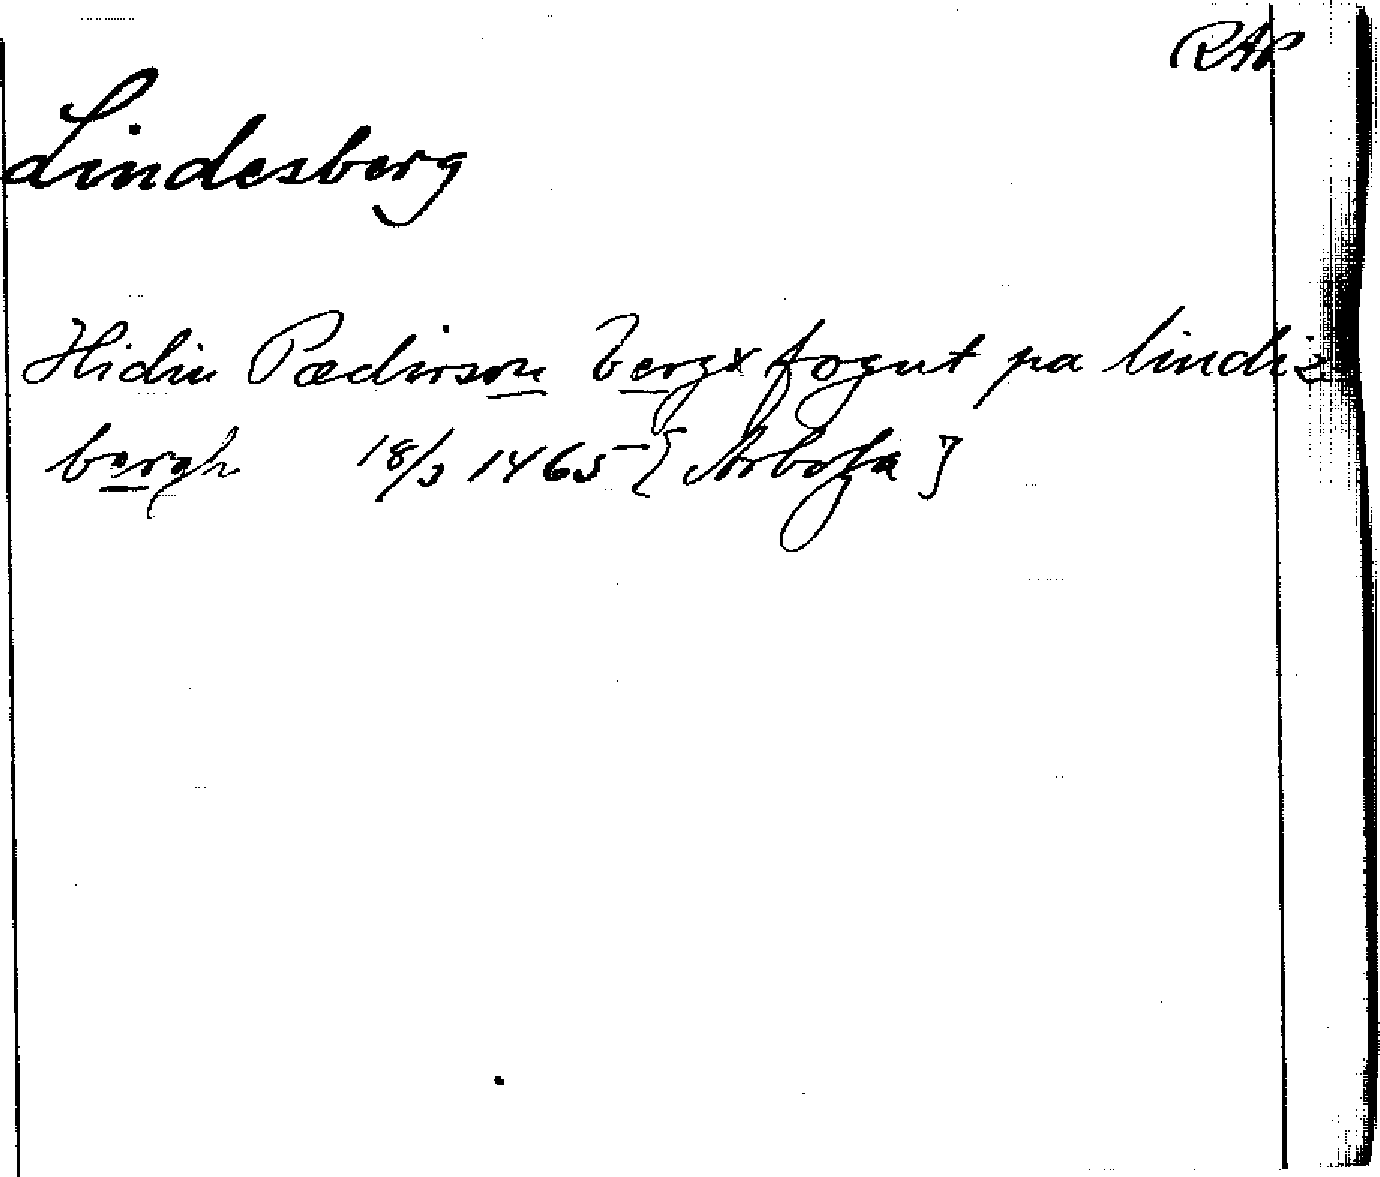 RAP
Lindesberg
Hidin Pædirson bergx fogut pa lindes
bergh 18/3 1465 [Arboga]